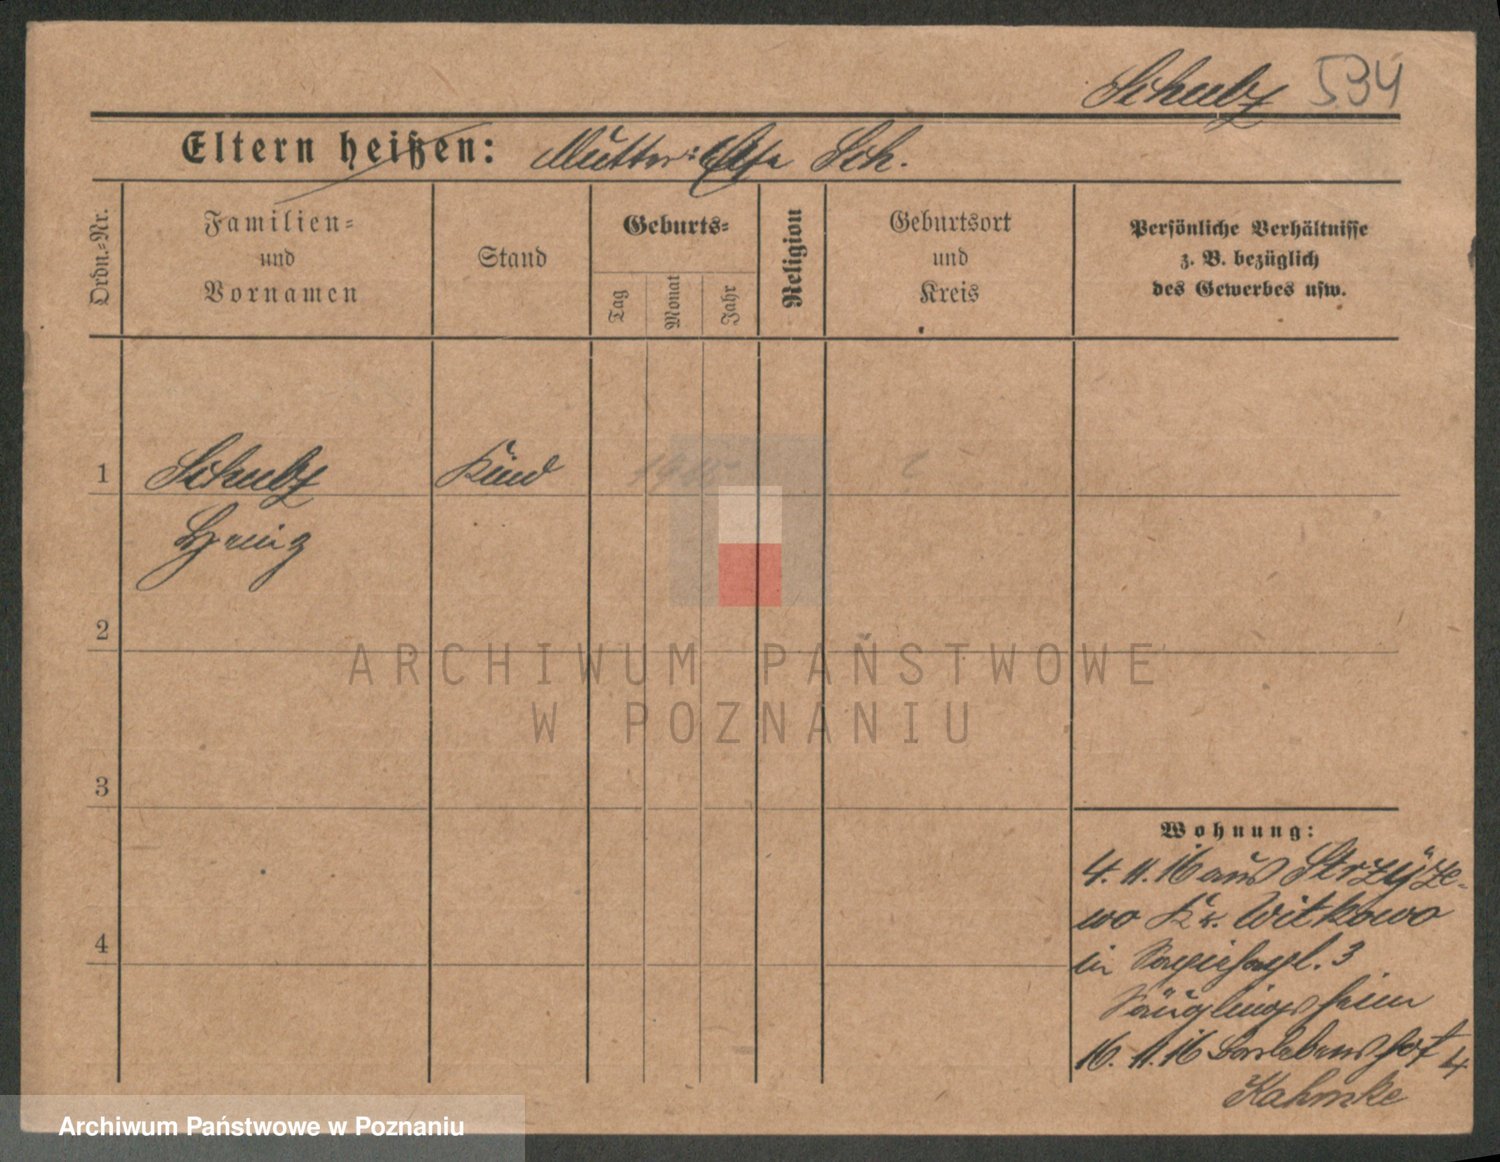 Schulz 534
Eltern heißen: Mutter: Else Sch.
Ordn.-Nr.
Familien-
und
Vornamen
Stand
Geburts-
Tag
Monat
Jahr
Religion
Geburtsort
und
Kreis
Persönliche Verhältnisse
z. B. bezüglich
des Gewerbes usw.
1
Schulz
Kind
2
3
4
Wohnung:
4. 11. 16 aus Strzyże-
wo Kr. Witkowo
in Sapiehapl. 3
Säuglingsheim
16. 11. 16
4
Kahmke
ARCHIWUM PAŃSTWOWE
W POZNANIU
Archiwum Państwowe w Poznaniu